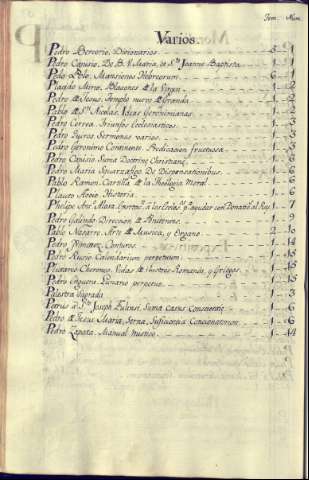 Tom. Num.
Varios.
Pedro Bercorio, Dicionarios 3 1
Pedro Canisio, De B. V. Maria, et S. Joanne Baptista 1 1
Polo, Mansiones Hebreorum 1
Placido Mirto, Blasones de la Virgen 1 2
Pedro de Jesus, Templo nuevo de Granda 1 2
Pablo de S. Nicolas, Idias Geronimianas 1 2
Pedro Correa, Triunfos Ecclesiasticos 1 3
Pedro Quiros, Sermones varios 1 3
Pedro Geronimo Continente, Predicacion fructuosa 1 3
Pedro Canisio, Suma Doctrine Christiane 1 6
Pedro Maria Squarzafigo De Dispensationibus 1 6
Pablo Ramon, Cartilla de la Theologia Moral 1 6
Plauto Novio, Historia 1 6
Phelipe Ant. Alosa, al Rey 1 7
Pedro Galindo, Direccion de Penitentes 1 9
Pablo Nasarre, Arte de Musica, y Organo 2 10
Pedro Ximenez, Conjuros 1 14
Pedro Rucio, Calendarium perpetuum 1 15
Plutarco Cheroneo, Vidas de Ilustres Romanos, y Griegos 1 15
Pedro Enguera, Lunario perpetuo 1 15
Palestra Sagrada 1 3
Petrus a S. Joseph Fuliensi, Suma Casus Conscientie 1 6
Pedro de Jesus Maria, Serna, Suficiencia Concionatorum 1 6
Pedro Zapata, Manual mistico 1 14